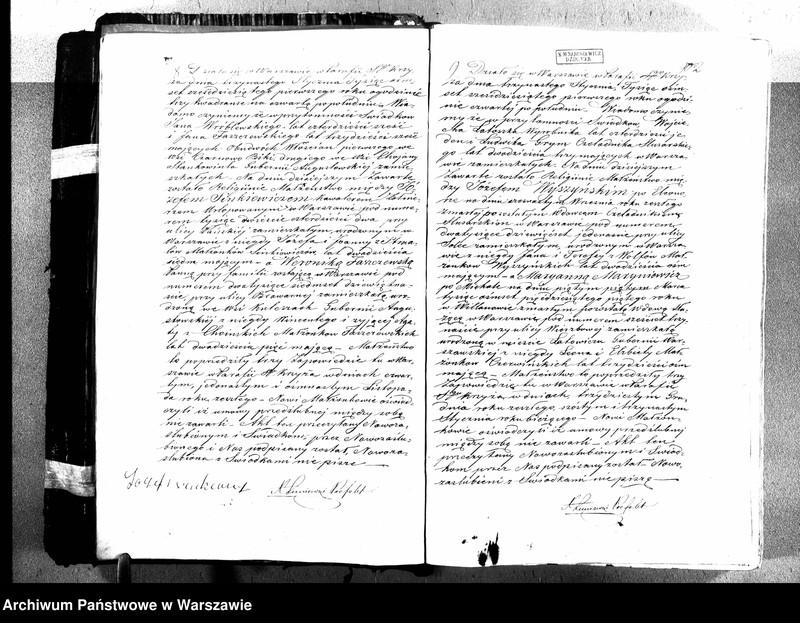 8. Działo się w Warszawie w Parafii Śgo Krzy-
ża dnia trzynastego Stycznia Tysiąc ośm-
set sześćdziesiątego pierwszego roku o godzinie
trzy kwadranse na czwartą po południu. Wia-
domo czyniemy iż w przytomności Świadków
Jana Wróblewskiego lat czterdzieści sześć
i Jana lat trzydzieści sześć
mających Obudwóch Włościan pierwszego we
Wsi Czarnowo Biki drugiego we Wsi Chojany
Stankowięta Gubernii Augustowskiej zamie-
szkałych. Na dniu dzisiejszym zawarte
zostało Religijnie Małżeństwo między Jó-
zefem Sienkiewiczem kawalerem Żołnie-
rzem Urlopowanym w Warszawie pod nume-
rem tysiąc dwieście czterdzieści dwa przy
ulicy Pańskiej zamieszkałym, urodzonym w
Warszawie z niegdy Józefa i Joanny z
Małżonków Sienkiewiczów lat dwadzieścia
siedm mającym – a Weroniką Jarzewską
Panną przy familii zostającą w Warszawie pod
numerem dwa tysiące siedmset dziewiętna-
ście przy ulicy Browarnej zamieszkałą uro-
dzoną we Wsi Kuleszach Gubernii Augu-
stowskiej z niegdy Wincentego i żyjącej Aga-
ty z Małżonków
lat dwadzieścia pięć mającą – Małżeństwo
to poprzedziły trzy zapowiedzie tu w War-
szawie w Parafii Śgo Krzyża w dniach czwar-
tym, jedenastym i ośmnastym Listopa-
da roku zeszłego – Nowi Małżonkowie oświad-
czyli iż umowy przedślubnej między sobą
nie zawarli – Akt ten przeczytany Nowoza-
ślubionym i Świadkom, przez Nowozaślu-
bionego i Nas podpisany został, Nowoza-
ślubiona i Świadkowie nie piszą
9. Działo się w Warszawie w Parafii Śgo Krzy-
ża dnia trzynastego Stycznia, Tysiąc ośm-
set sześćdziesiątego pierwszego roku o godzi-
nie czwartej po południu. Wiadomo czynie-
my iż w przytomności Świadków Wojcie-
cha Wyrobnika lat czterdzieści je-
den i Ludwika Czeladnika Mularskie-
go lat dwadzieścia trzy mających w Warsza-
wie zamieszkałych. Na dniu dzisiejszym
zawarte zostało Religijnie Małżeństwo mię-
dzy Józefem Wyszyńskim po
na dniu Września roku zeszłego
zmarłej pozostałym Wdowcem Czeladnikiem
Mularskim w Warszawie pod numerem
dwa tysiące dziewięćset jedenaście przy ulicy
Solec zamieszkałym, urodzonym w Warsza-
wie z niegdy Jana i Teresy z Wolfów Mał-
żonków Wyszyńskich lat dwadzieścia ośm
mającym – a Maryanną Marynowicz
po Michale na dniu piątym Mar-
tysiąc ośmset pięćdziesiątego piątego roku
w Wilanowie zmarłym pozostałą Wdową Słu-
żącą w Warszawie pod numerem sześćset trzy-
naście przy ulicy Wierzbowej zamieszkałą
urodzoną w mieście Latowiczu Gubernii War-
szawskiej z niegdy Leona i Elżbiety Mał-
żonków Czerwińskich lat trzydzieści ośm
mającą – Małżeństwo to poprzedziły trzy
zapowiedzie tu w Warszawie w Parafii
Śgo Krzyża w dniach, trzydziestym Gru-
dnia roku zeszłego, szóstym i trzynastym
Stycznia roku bieżącego – Nowi Małżon-
kowie oświadczyli iż umowy przedślubnej
między sobą nie zawarli – Akt ten
przeczytany Nowozaślubionym i Świad-
kom przez Nas podpisany został, Nowo-
zaślubieni i Świadkowie nie piszą
Archiwum Państwowe w Warszawie